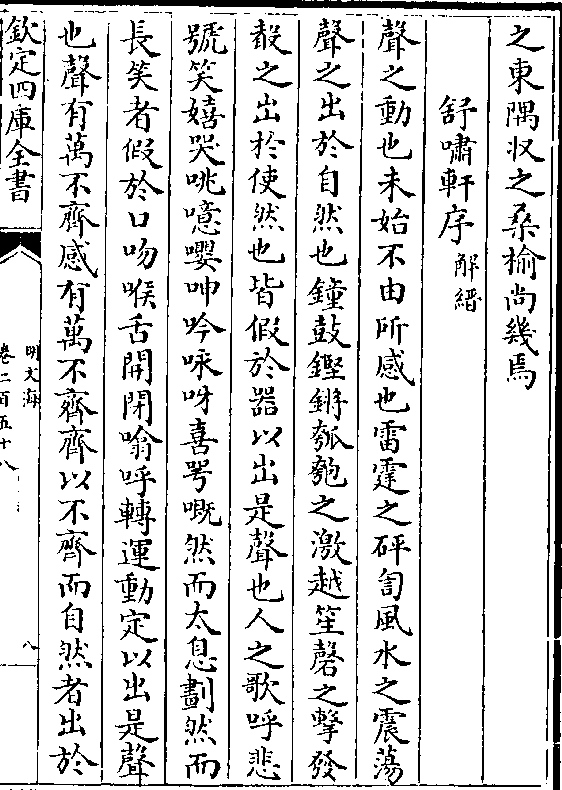 之東隅収之桑榆尚幾焉
舒嘯軒序 解縉
聲之動也未始不由所感也雷霆之砰訇風水之震蕩
聲之出於自然也鐘鼓鏗鏘瓠匏之激越笙磬之擊發
殽之出於使然也皆假於器以出是聲也人之歌呼悲
號笑嬉哭咷噫嚶呻吟咏呀喜咢嘅然而太息劃然而
長笑者假於口吻喉舌開閉噏呼轉運動定以出是聲
也聲有萬不齊感有萬不齊齊以不齊而自然者出於
欽定四庫全書
明文海
卷二百五十八
八